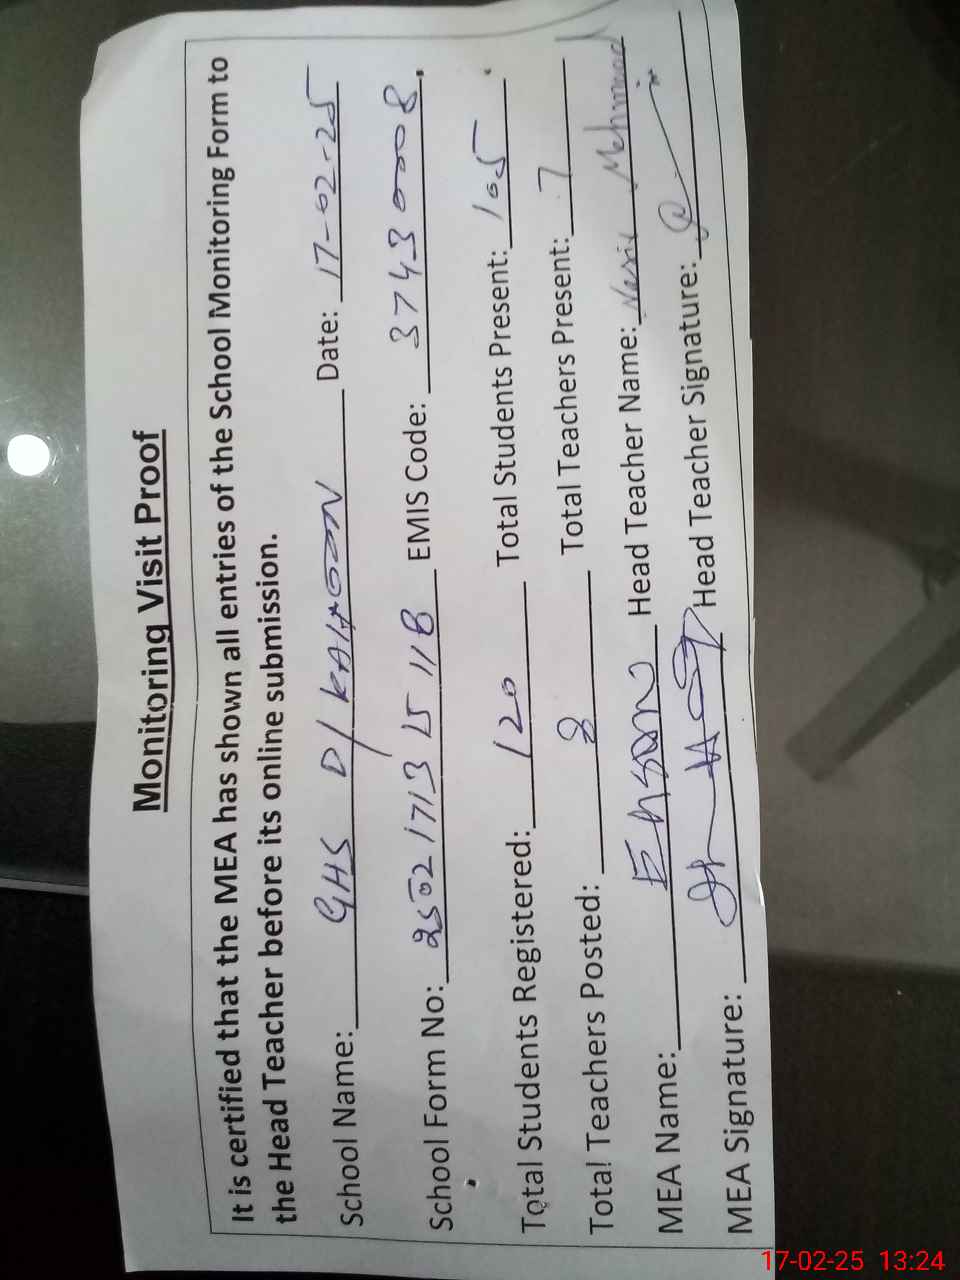 Monitoring Visit Proof
It is certified that the MEA has shown all entries of the School Monitoring Form to
the Head Teacher before its online submission.
School Name: GHS D/KAHOON Date: 17-02-25
School Form No: 25021713 15 11B EMIS Code: 37430008
Total Students Registered: 120 Total Students Present: 105
Total Teachers Posted: 8 Total Teachers Present: 7
MEA Name: Ehsan Head Teacher Name: Nasir Mehmood
MEA Signature: Head Teacher Signature:
17-02-25 13:24